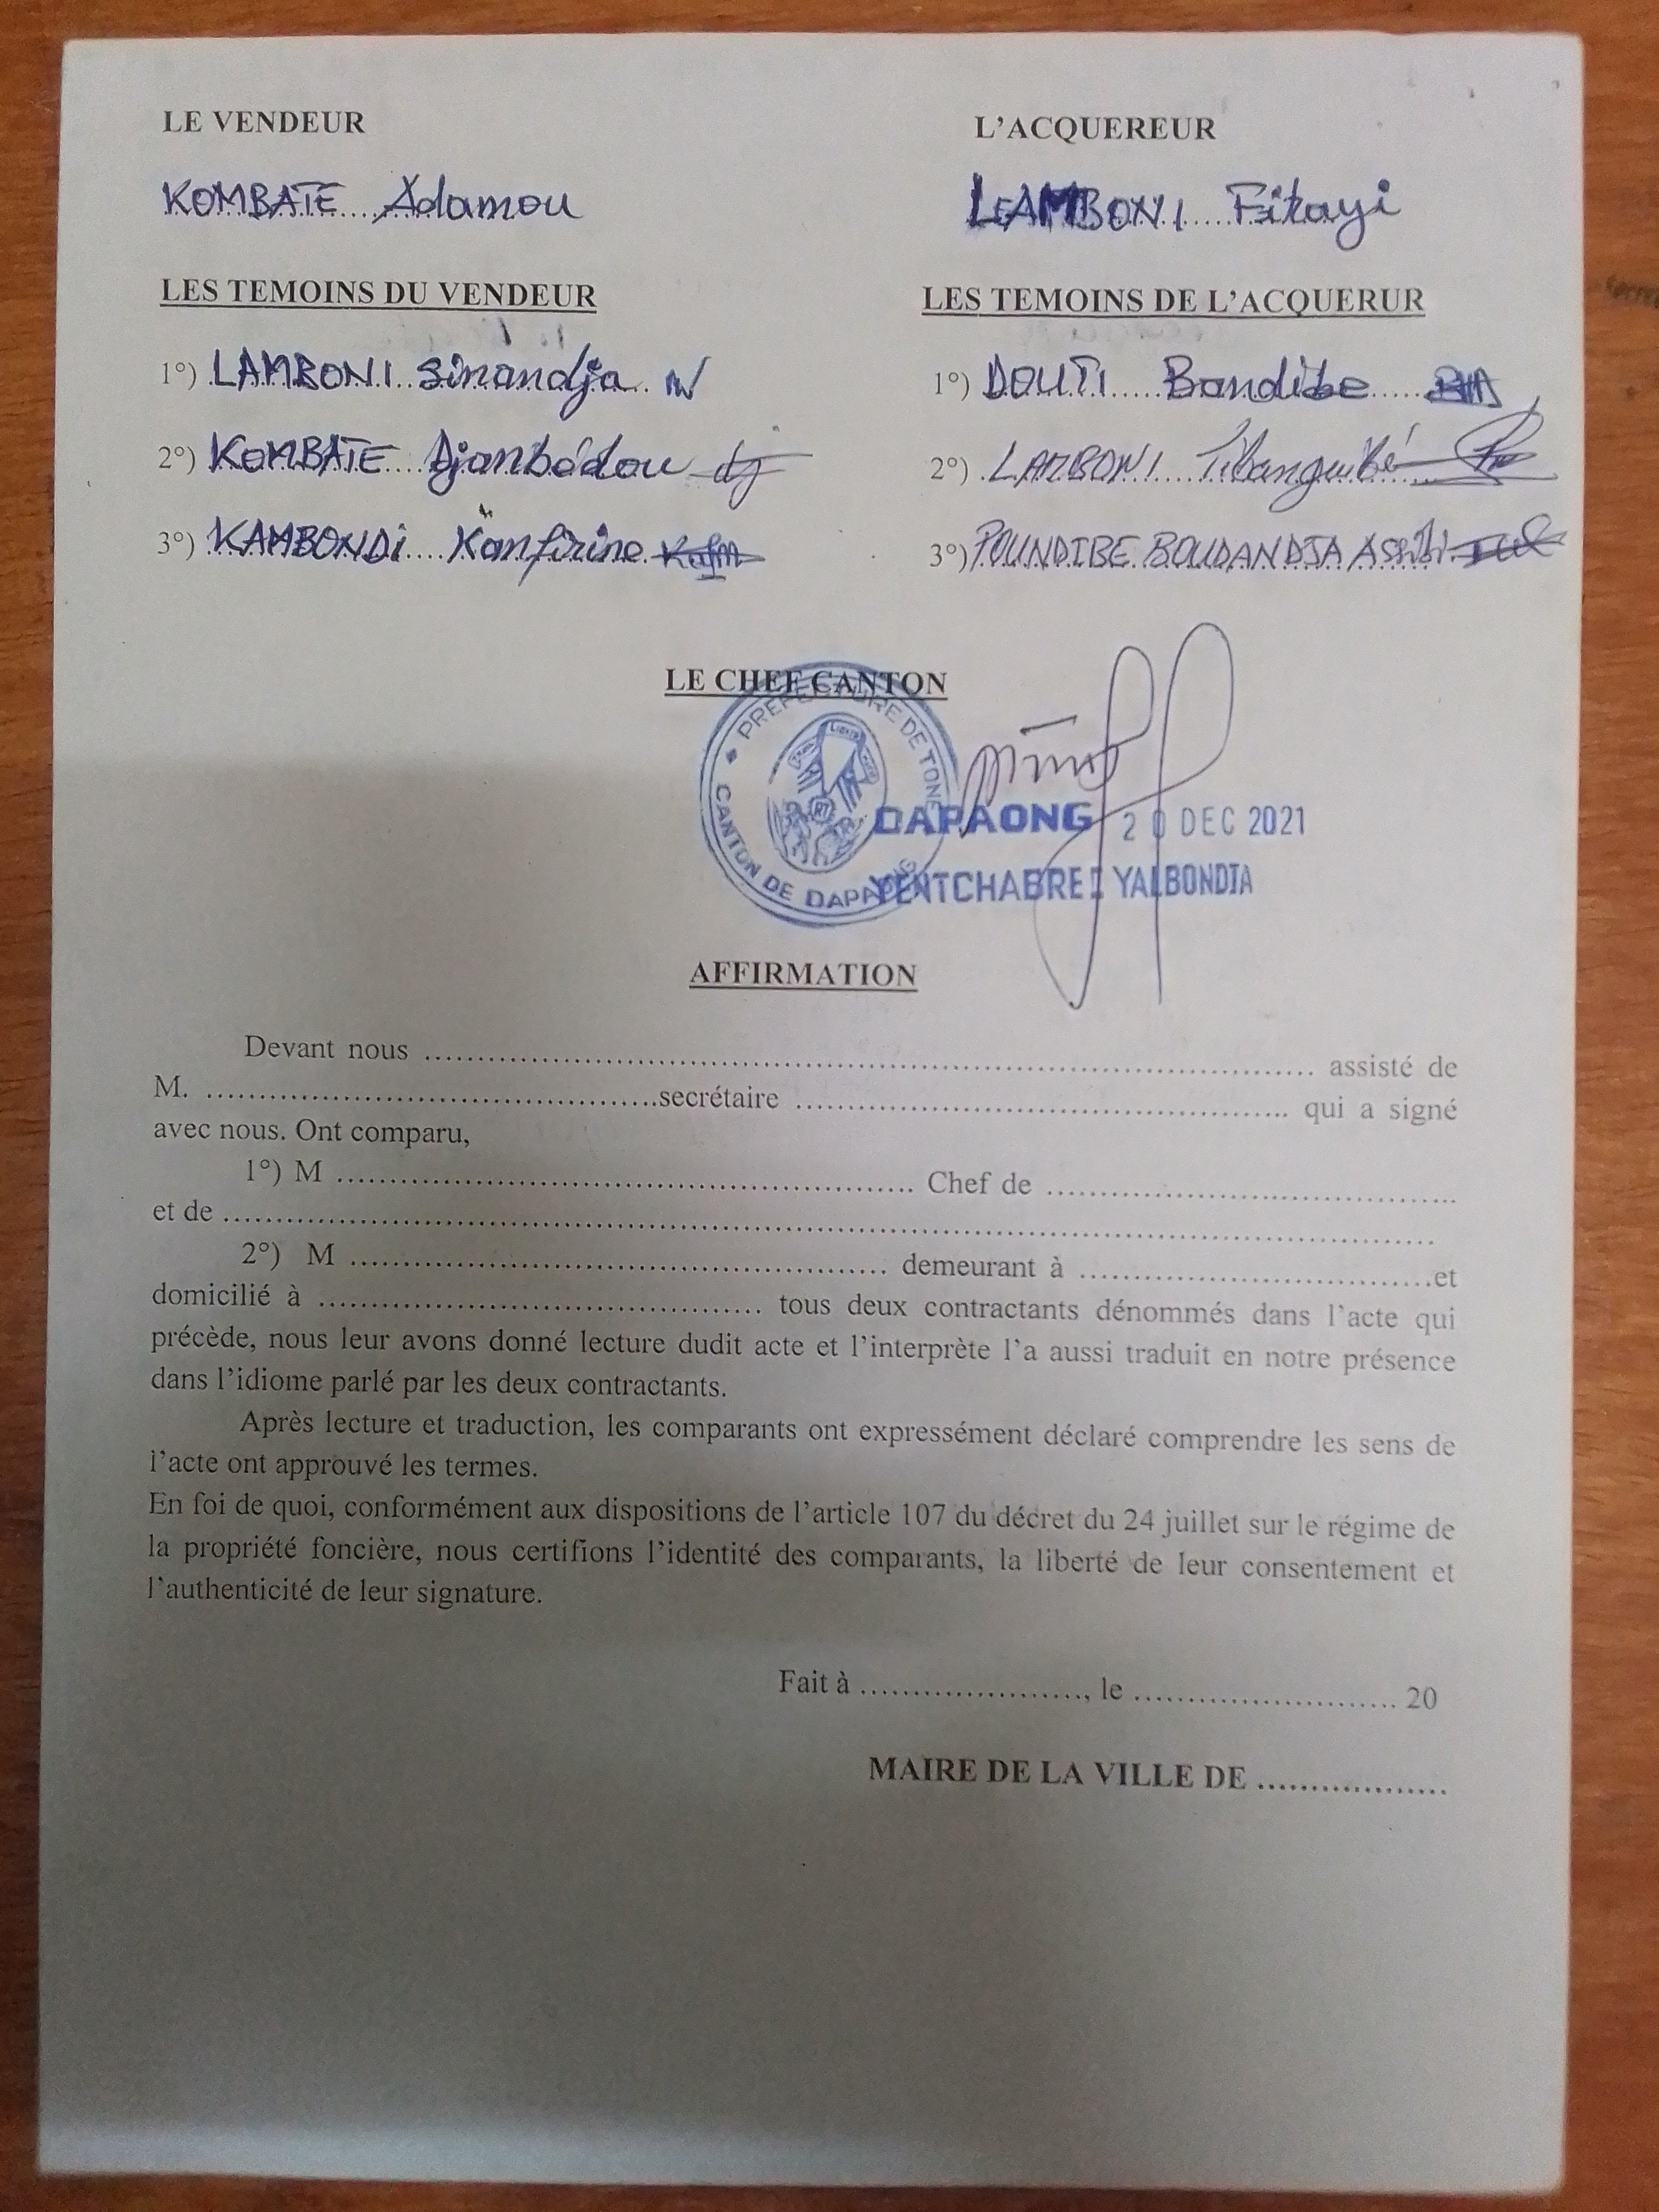 LE VENDEUR
L'ACQUEREUR
KOMBATE Adamou
LAMBONI Fitayi
LES TEMOINS DU VENDEUR
LES TEMOINS DE L'ACQUERUR
1°) LAMBONI Sinandja
1°) DOUTI Bandibe
2°) KOMBATE Djanbédou
2°) LAMBONI Tibanguibé
3°) KAMBONDI Kanfirine
3°) POUNDIBE BOUDANDJA Assibi
LE CHEF CANTON
PREFECTURE DE TONE
CANTON DE DAPAONG
RT
DAPAONG 20 DEC 2021
YENTCHABRE I YALBONDJA
AFFIRMATION
Devant nous .......... assisté de
M. ..........secrétaire .......... qui a signé
avec nous. Ont comparu,
1°) M .......... Chef de ..........
et de ..........
2°) M .......... demeurant à ..........et
domicilié à .......... tous deux contractants dénommés dans l'acte qui
précède, nous leur avons donné lecture dudit acte et l'interprète l'a aussi traduit en notre présence
dans l'idiome parlé par les deux contractants.
Après lecture et traduction, les comparants ont expressément déclaré comprendre les sens de
l'acte ont approuvé les termes.
En foi de quoi, conformément aux dispositions de l'article 107 du décret du 24 juillet sur le régime de
la propriété foncière, nous certifions l'identité des comparants, la liberté de leur consentement et
l'authenticité de leur signature.
Fait à .........., le .......... 20
MAIRE DE LA VILLE DE ..........